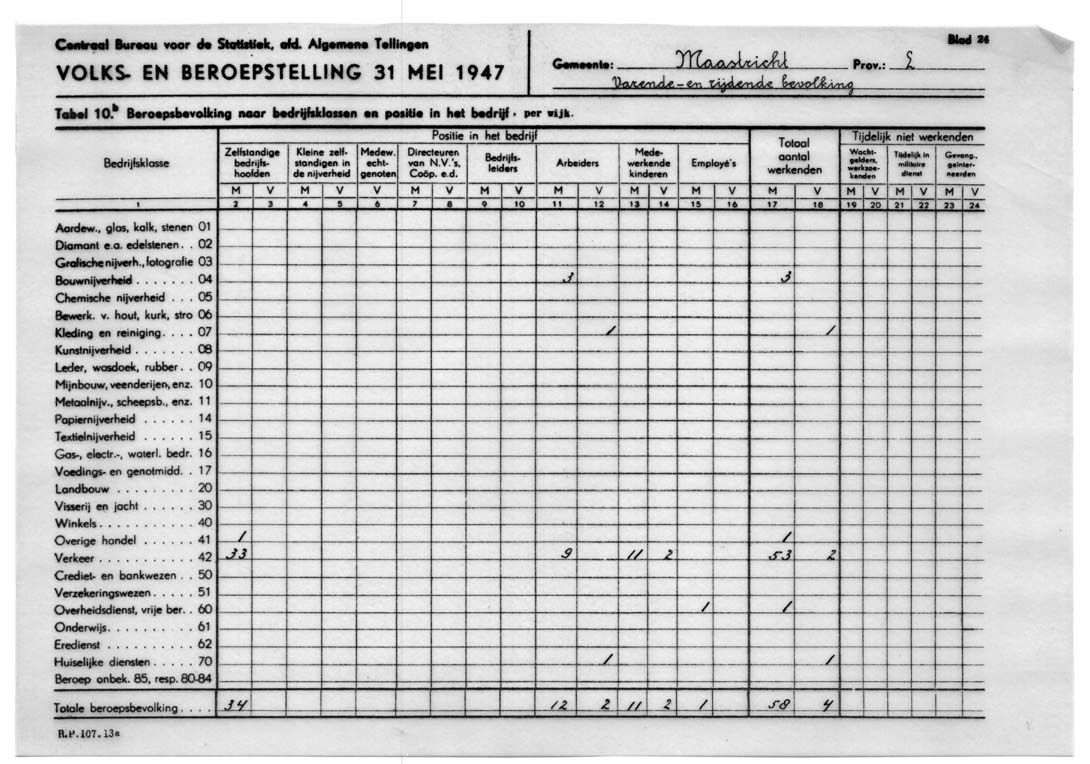 Centraal Bureau voor de Statistiek, afd. Algemene Tellingen
Blad 24
VOLKS- EN BEROEPSTELLING 31 MEI 1947
Gemeente: Maastricht Prov.: L
Varende- en rijdende bevolking
Tabel 10.b Beroepsbevolking naar bedrijfsklassen en positie in het bedrijf, per wijk.
Bedrijfsklasse
Positie in het bedrijf
Zelfstandige bedrijfs-hoofden
Kleine zelf-standigen in de nijverheid
Medew. echt-genoten
Directeuren van N.V.'s, Coöp. e.d.
Bedrijfs-leiders
Arbeiders
Mede-werkende kinderen
Employé's
Totaal aantal werkenden
Tijdelijk niet werkenden
Wacht-gelders, werkzoe-kenden
Tijdelijk in militaire dienst
Gevang., geinter-neerden
M V M V V M V M V M V M V M V M V M V M V M V
1 2 3 4 5 6 7 8 9 10 11 12 13 14 15 16 17 18 19 20 21 22 23 24
Aardew., glas, kalk, stenen 01
Diamant e.a. edelstenen . . 02
Grafische nijverh., fotografie 03
Bouwnijverheid . . . . . . . 04 3 3
Chemische nijverheid . . . 05
Bewerk. v. hout, kurk, stro 06
Kleding en reiniging. . . . 07 1 1
Kunstnijverheid . . . . . . . 08
Leder, wasdoek, rubber. . 09
Mijnbouw, veenderijen, enz. 10
Metaalnijv., scheepsb., enz. 11
Papiernijverheid . . . . . . 14
Textielnijverheid . . . . . . 15
Gas-, electr.-, waterl. bedr. 16
Voedings- en genotmidd. . 17
Landbouw . . . . . . . . . 20
Visserij en jacht . . . . . . 30
Winkels. . . . . . . . . . . 40
Overige handel . . . . . . 41 1 1
Verkeer . . . . . . . . . . 42 33 9 11 2 53 2
Crediet- en bankwezen . . 50
Verzekeringswezen . . . . . 51
Overheidsdienst, vrije ber. . 60 1 1
Onderwijs. . . . . . . . . . 61
Eredienst . . . . . . . . . 62
Huiselijke diensten . . . . . 70 1 1
Beroep onbek. 85, resp. 80-84
Totale beroepsbevolking . . . . 34 12 2 11 2 1 58 4
R.P.107.13a